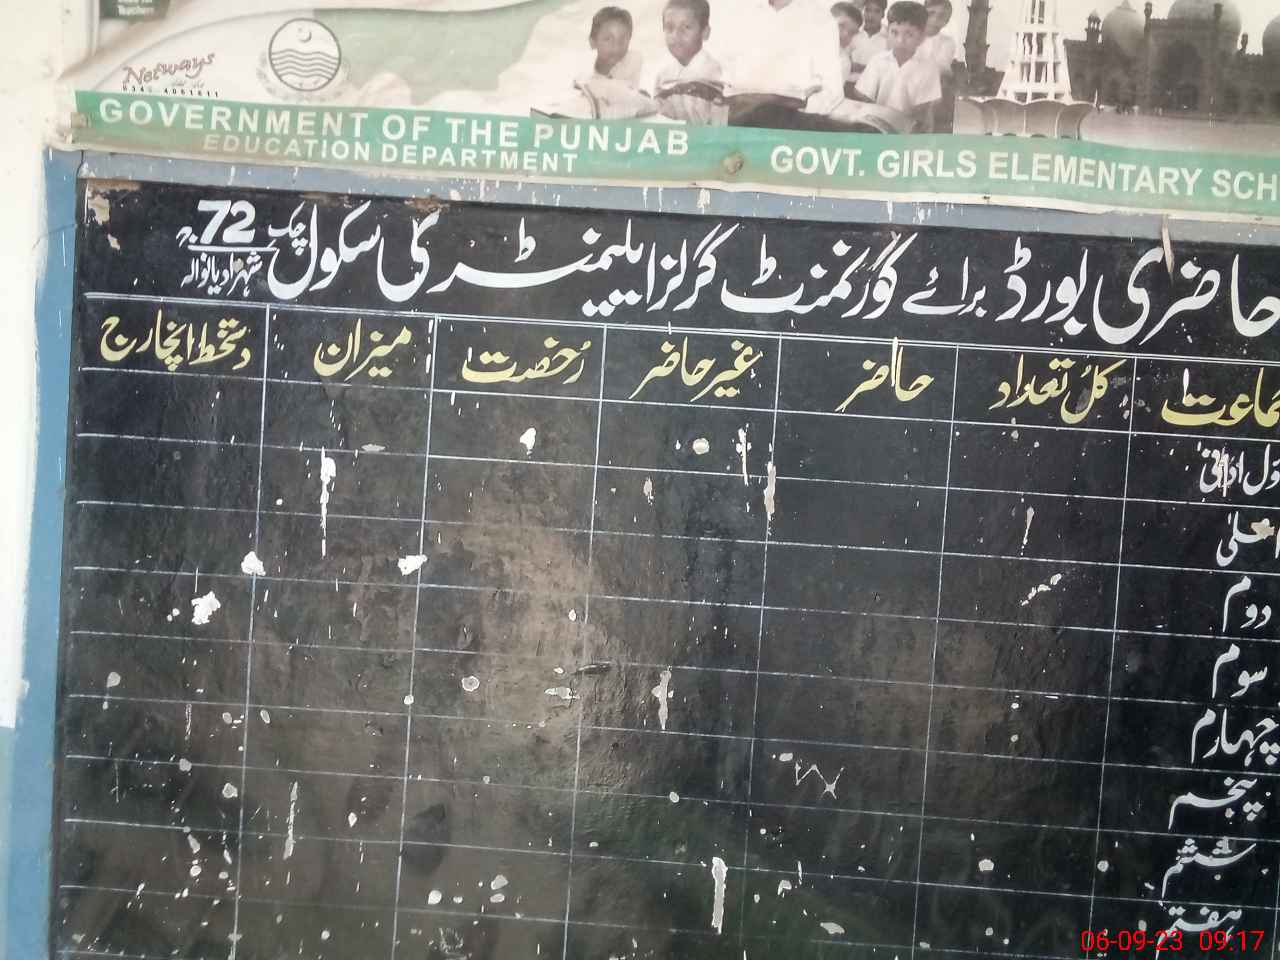 Teachers
Netways
GOVERNMENT OF THE PUNJAB
EDUCATION DEPARTMENT
GOVT. GIRLS ELEMENTARY SCH
حاضری بورڈ برائے گورنمنٹ گرلز ایلیمنٹری سکول چک 72 ج
شہزادیانوالہ
جماعت کل تعداد حاضر غیر حاضر رُخصت میزان دستخط انچارج
اول ادنیٰ
اعلیٰ
دوم
سوم
چہارم
پنجم
ششم
ہفتم
06-09-23 09:17